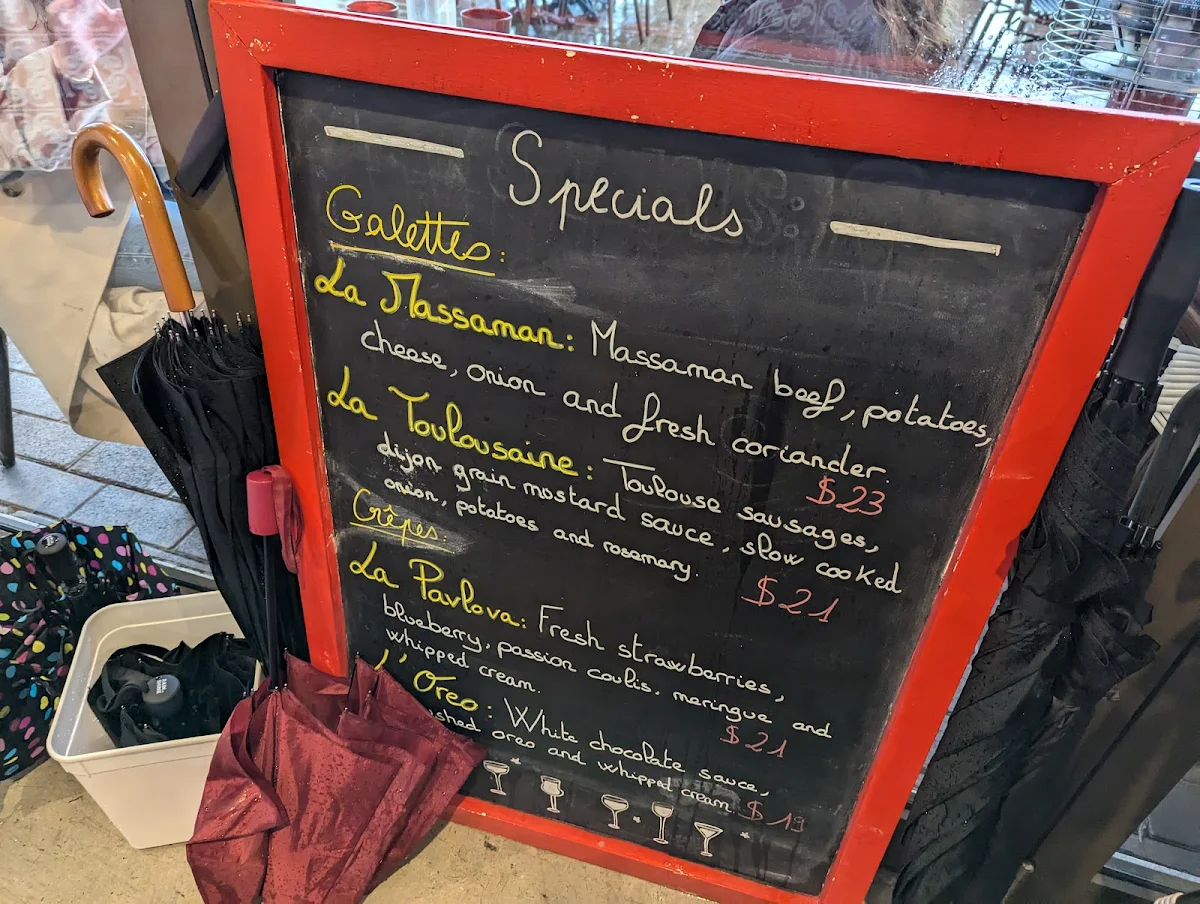 Specials
Galettes:
La Massaman: Massaman beef, potatoes,
cheese, onion and fresh coriander.
$23
La Toulousaine: Toulouse sausages,
dijon grain mostard sauce, slow cooked
onion, potatoes and rosemary.
$21
Crêpes:
La Pavlova: Fresh strawberries,
blueberry, passion coulis, meringue and
whipped cream.
$21
L'Oreo: White chocolate sauce,
oreo and whipped cream.
$19